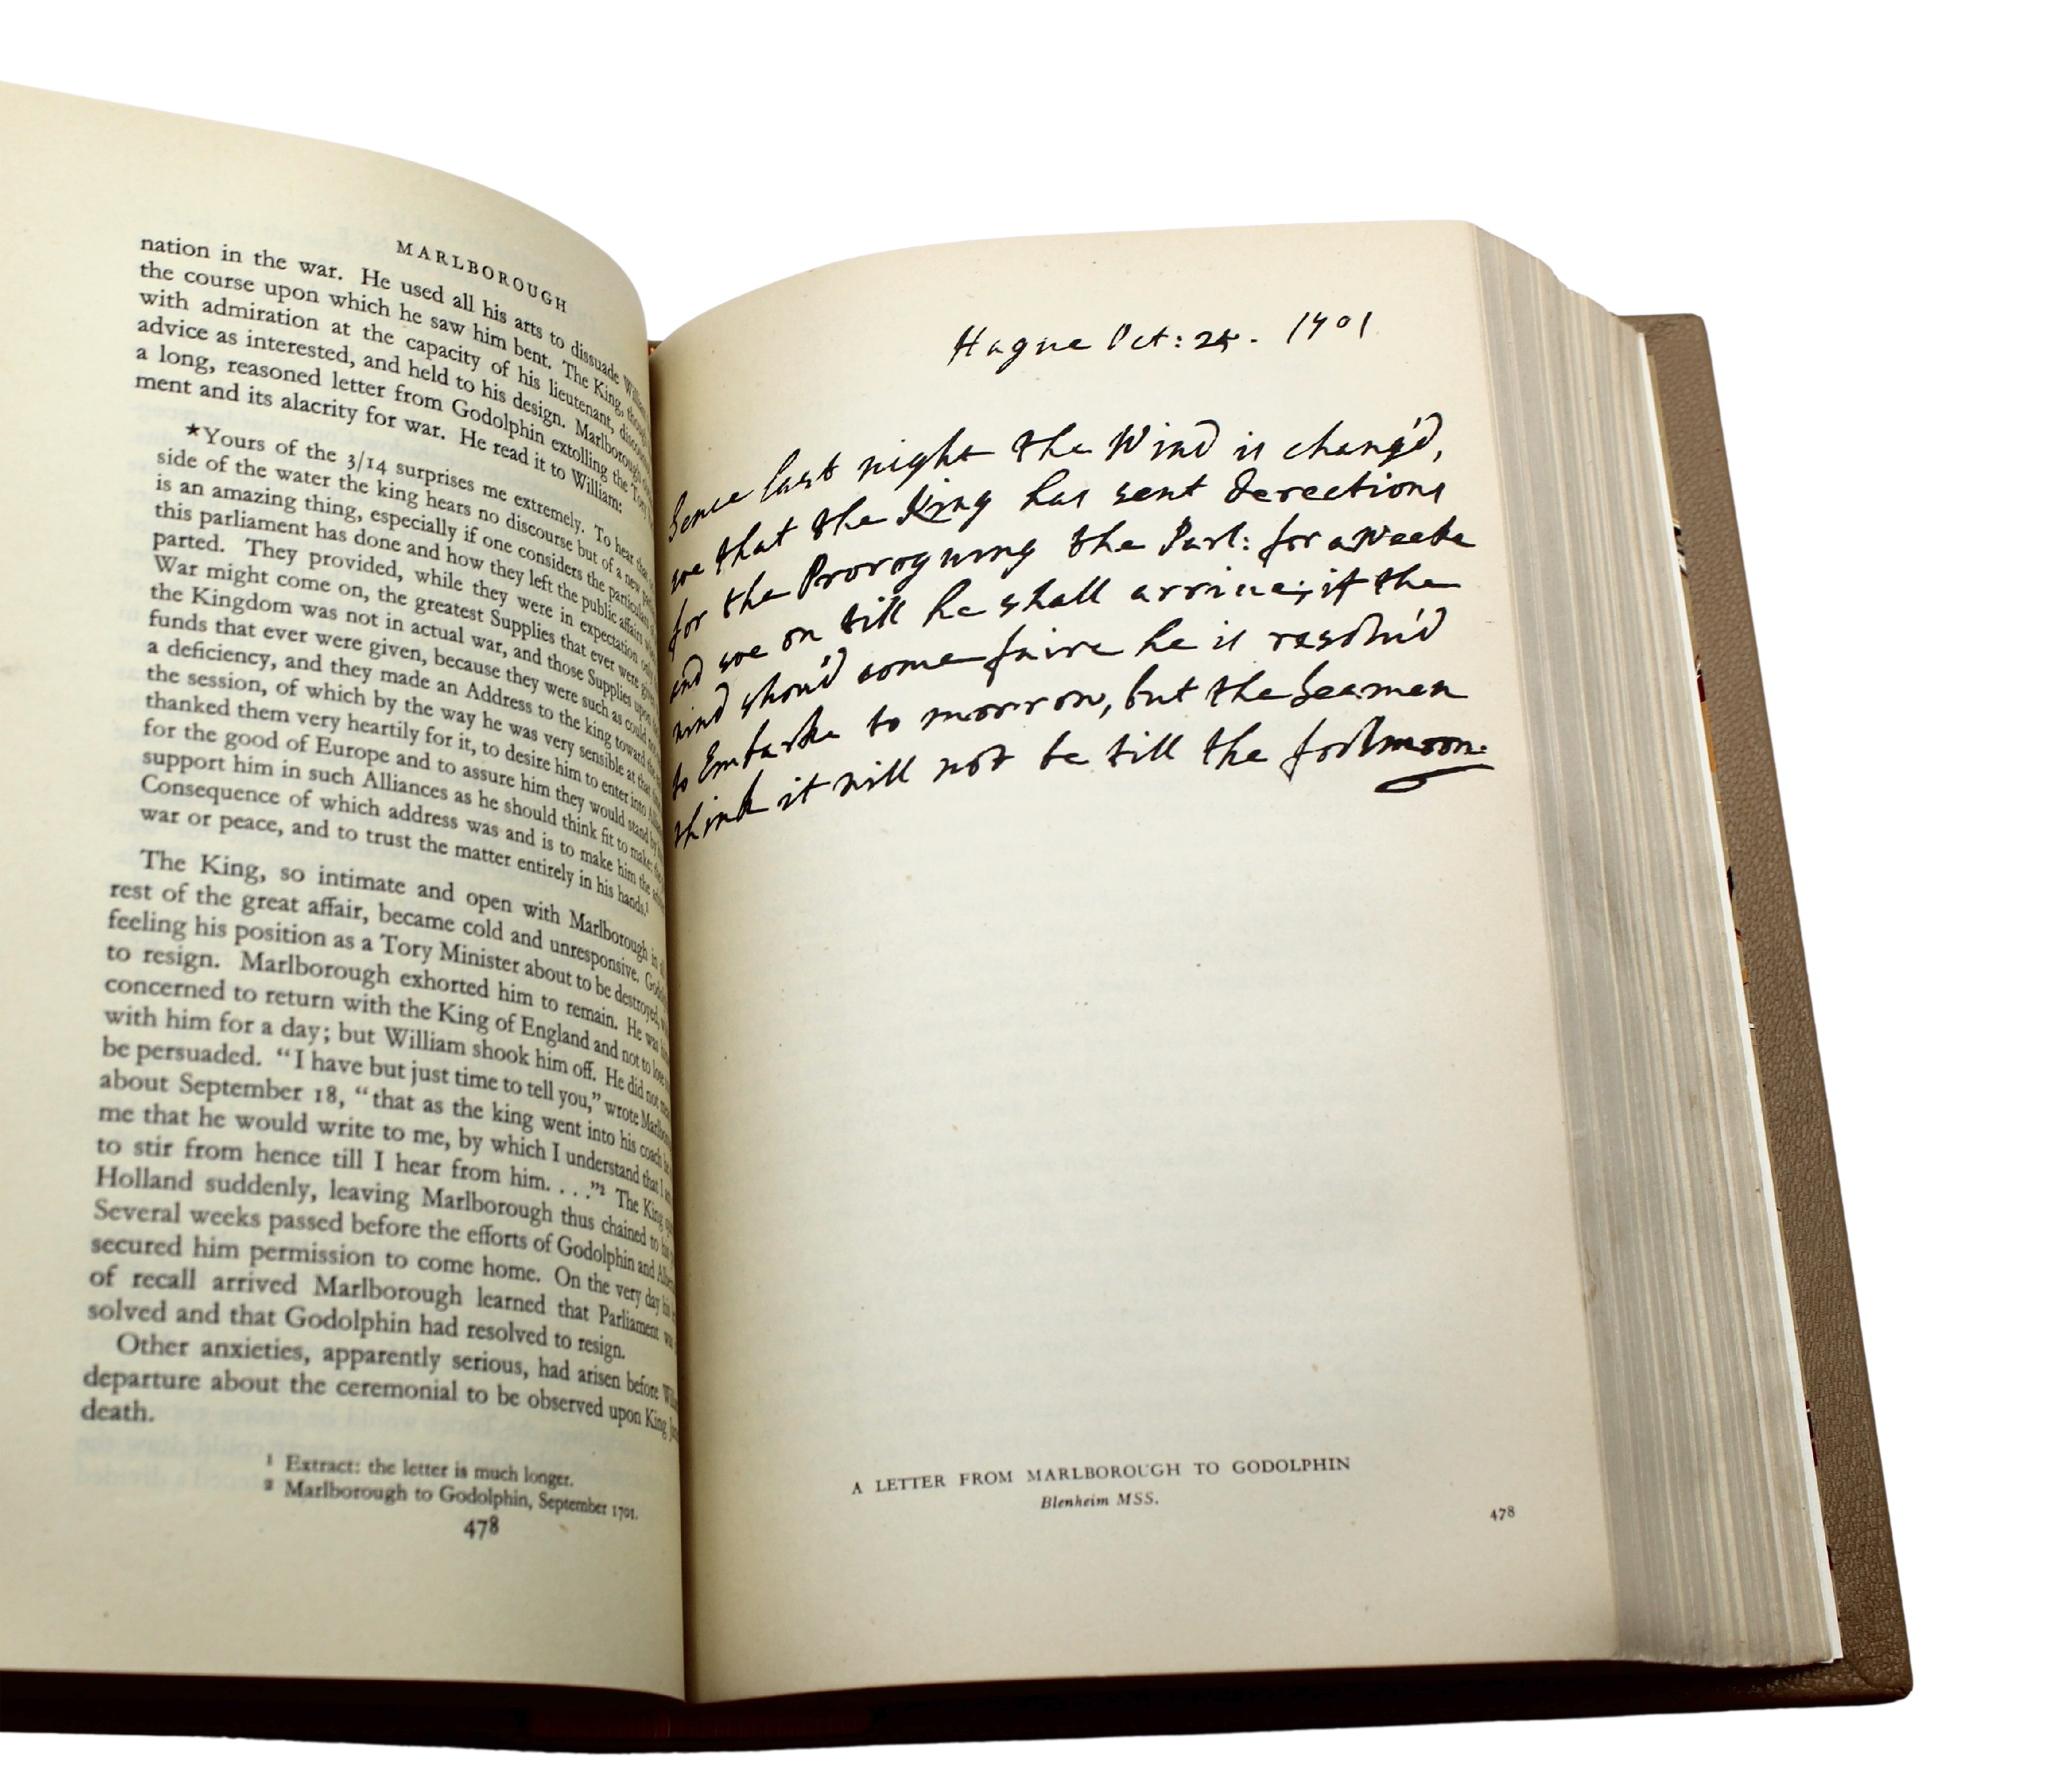 MARLBOROUGH
nation in the war. He used all his arts to dissuade
the course upon which he saw him bent. The King,
with admiration at the capacity of his lieutenant,
advice as interested, and held to his design. Marlborough
a long, reasoned letter from Godolphin extolling the Tory
ment and its alacrity for war. He read it to William:
★Yours of the 3/14 surprises me extremely. To hear that
side of the water the king hears no discourse but of a new
is an amazing thing, especially if one considers the particulars
this parliament has done and how they left the public affairs
parted. They provided, while they were in expectation only
War might come on, the greatest Supplies that ever were given
the Kingdom was not in actual war, and those Supplies upon
funds that ever were given, because they were such as could not
a deficiency, and they made an Address to the king toward the
the session, of which by the way he was very sensible at that
thanked them very heartily for it, to desire him to enter into
for the good of Europe and to assure him they would stand by
support him in such Alliances as he should think fit to make: the
Consequence of which address was and is to make him the
war or peace, and to trust the matter entirely in his hands.¹
The King, so intimate and open with Marlborough in
rest of the great affair, became cold and unresponsive.
feeling his position as a Tory Minister about to be destroyed,
to resign. Marlborough exhorted him to remain. He was
concerned to return with the King of England and not to lose
with him for a day; but William shook him off. He did not
be persuaded. “I have but just time to tell you,” wrote
about September 18, “that as the king went into his coach
me that he would write to me, by which I understand that I
to stir from hence till I hear from him. . . .”² The King
Holland suddenly, leaving Marlborough thus chained to his
Several weeks passed before the efforts of Godolphin and
secured him permission to come home. On the very day his
of recall arrived Marlborough learned that Parliament was
solved and that Godolphin had resolved to resign.
Other anxieties, apparently serious, had arisen before
departure about the ceremonial to be observed upon King
death.
¹ Extract: the letter is much longer.
² Marlborough to Godolphin, September 1701.
478
Hague Oct: 1701
Sence last night the Wind is chang'd,
soe that the King has sent derections
for the Proroguing the Parl: for a Weeke
and soe on till he shall arrive; if the
wind shou'd come faire he is resolv'd
to Embarke to morrow, but the Seamen
think it will not be till the foolmoon.
A LETTER FROM MARLBOROUGH TO GODOLPHIN
Blenheim MSS.
478